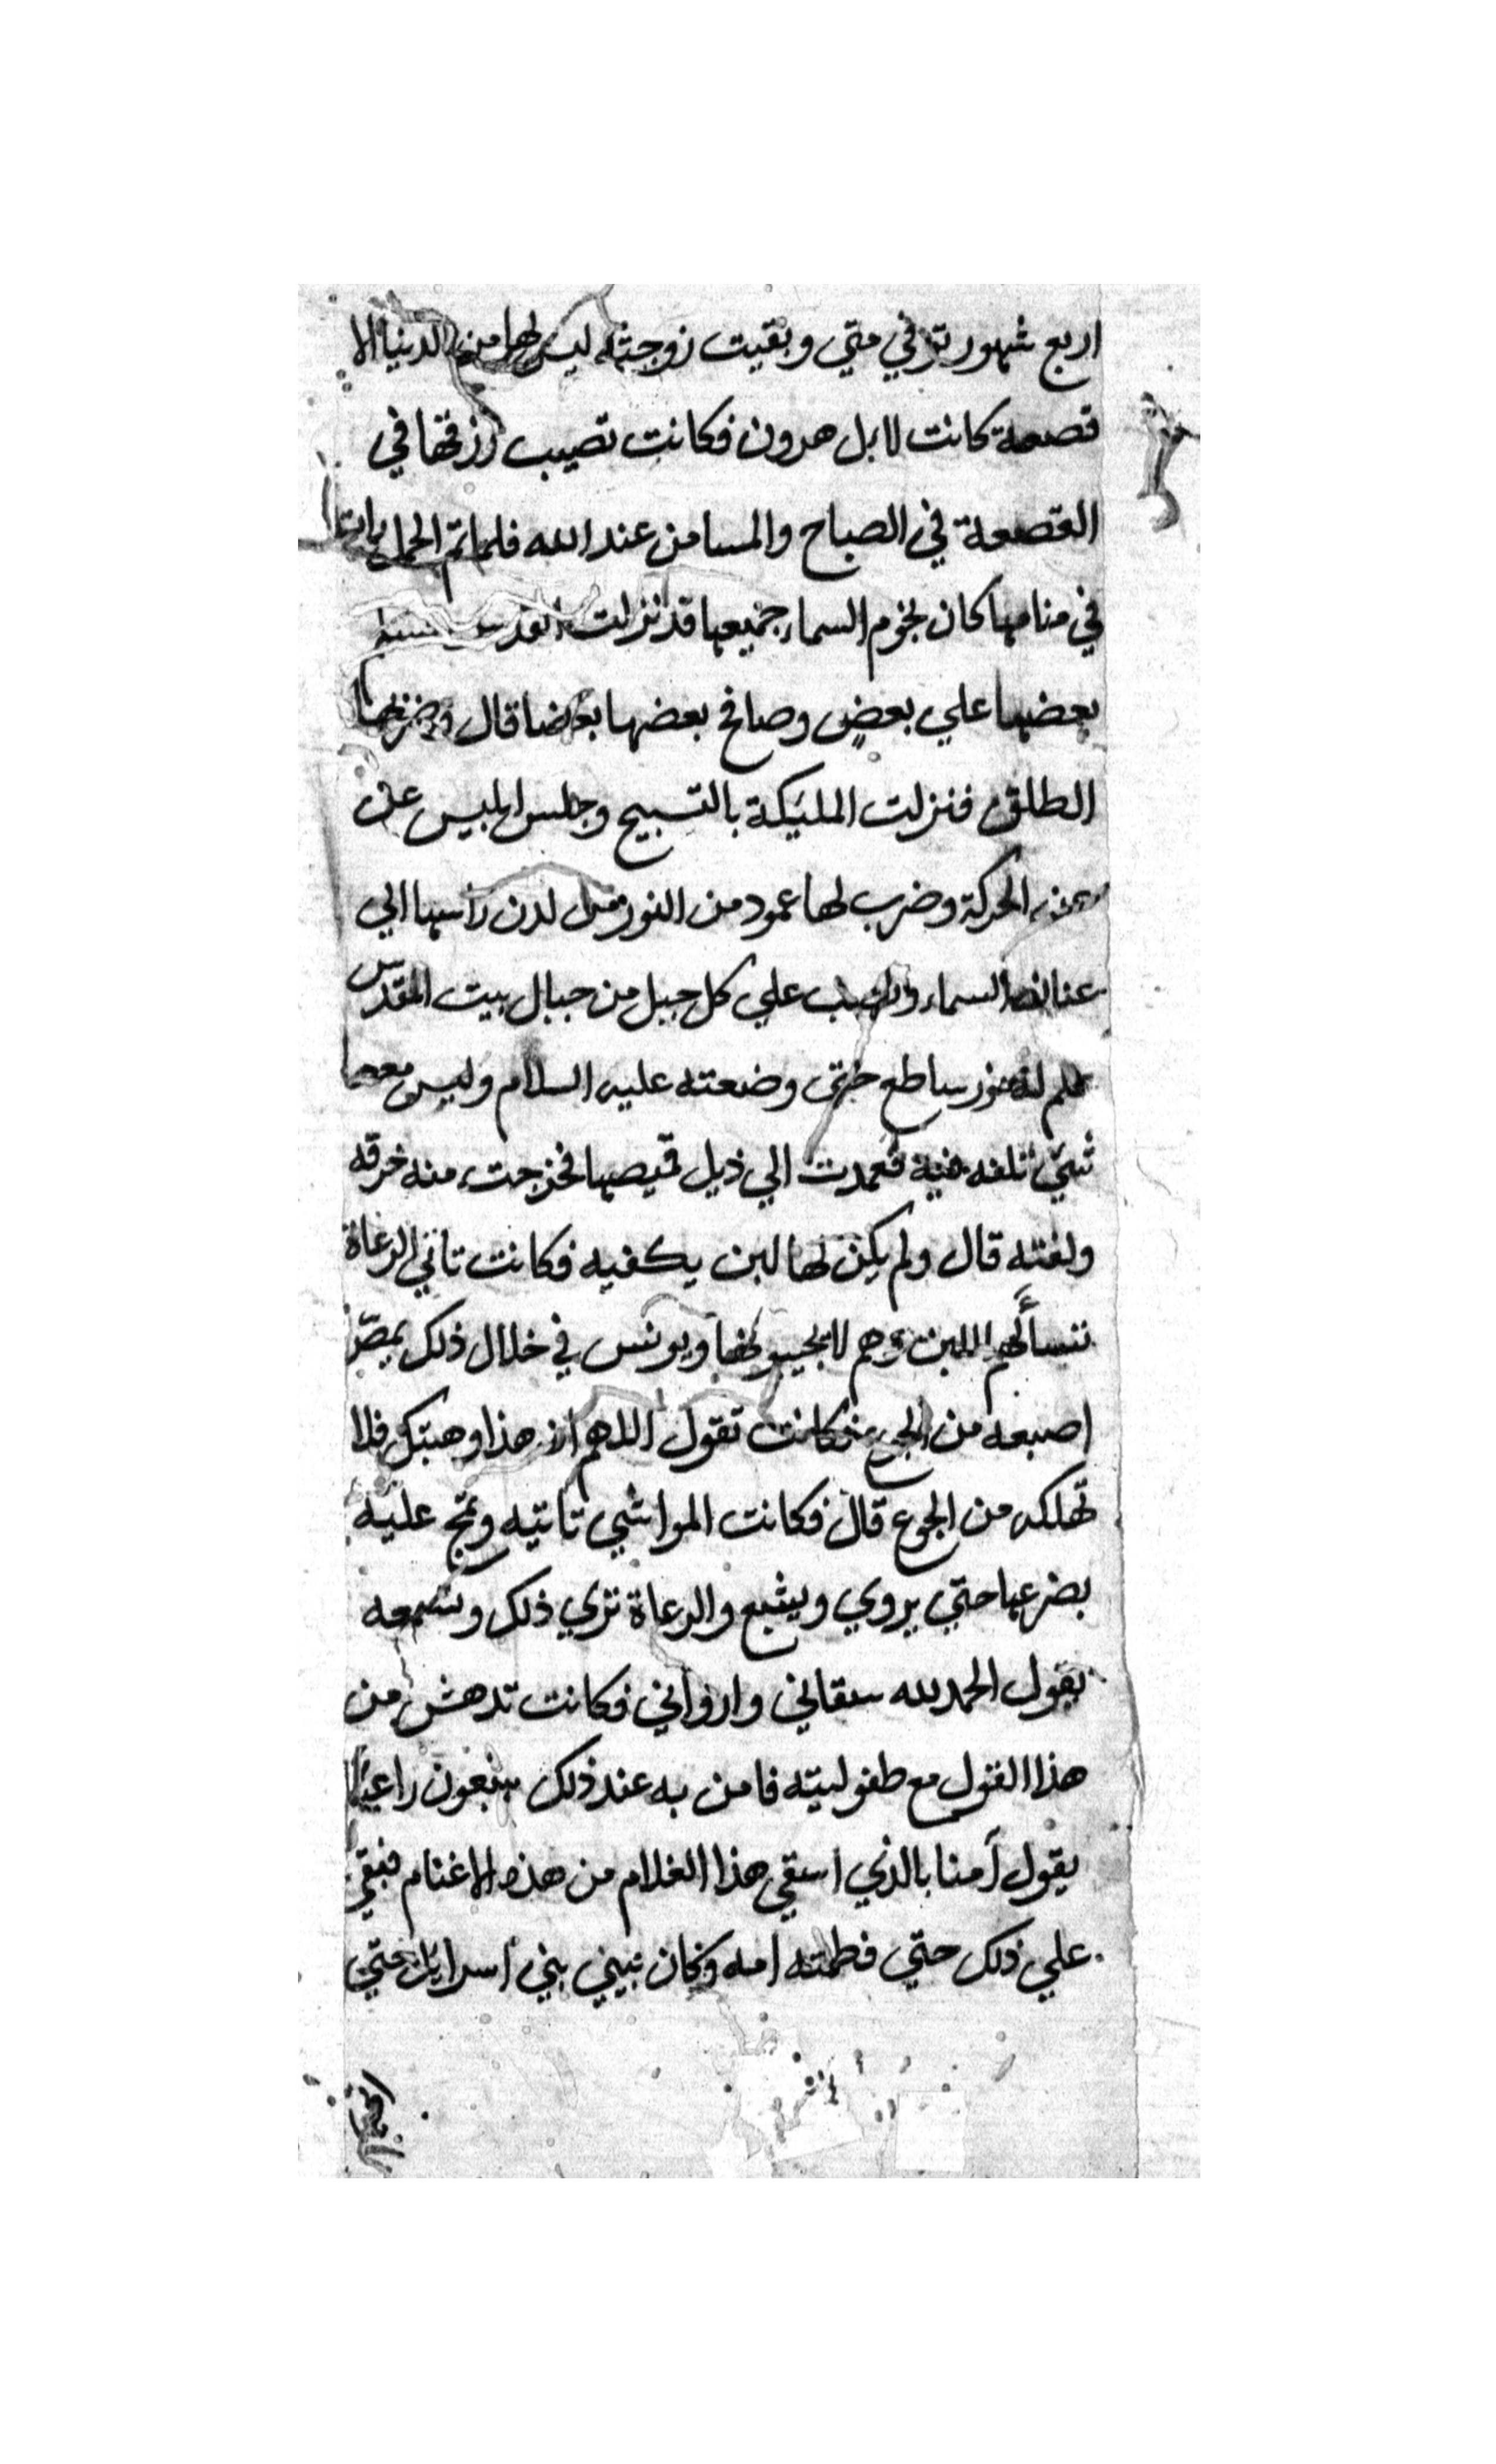 اربع شهور توفي متي وبقيت زوجته ليس لها من الدنيا الا
قصعة كانت لابل هرون فكانت تصيب رزقها في
القصعة في الصباح والمسا من عند الله فلما تم الحمل رات
في منامها كان نجوم السماء جميعها قد نزلت
بعضها علي بعضٍ وصافح بعضها بعضا قال وضربها
الطلق فنزلت المليكة بالتسبيح وجلس ابليس عن
الحركة وضرب لها عمود من النور من لدن راسها الي
عنان السماء ونصب علي كل جبل من جبال بيت المقدس
علم له نور ساطع حتي وضعته عليه السلام وليس معها
شيئ تلفه فيه فعمدت الي ذيل قميصها فخرجت منه خرقه
ولفته قال ولم يكن لها لبن يكفيه فكانت تاتي الرعاة
تسألهم اللبن وهم لا يجيبونها ويونس في خلال ذلك يمصّ
اصبعه من الجوع فكانت تقول اللهم ان هذا وهبتك فلا
تهلكه من الجوع قال فكانت المواشي تاتيه وتجٍ عليه
بضرعها حتي يروي ويشبع والرعاة تري ذلك وتسمعه
يقول الحمد لله سقاني وارواني فكانت تدهش من
هذا القول مع طفوليته فامن به عند ذلك سبعون راعيا
يقول آمنا بالذي اسقي هذا الغلام من هذه الاغنام فبقي
علي ذلك حتي فطمته امه وكان نبيني بني اسرايل حتي